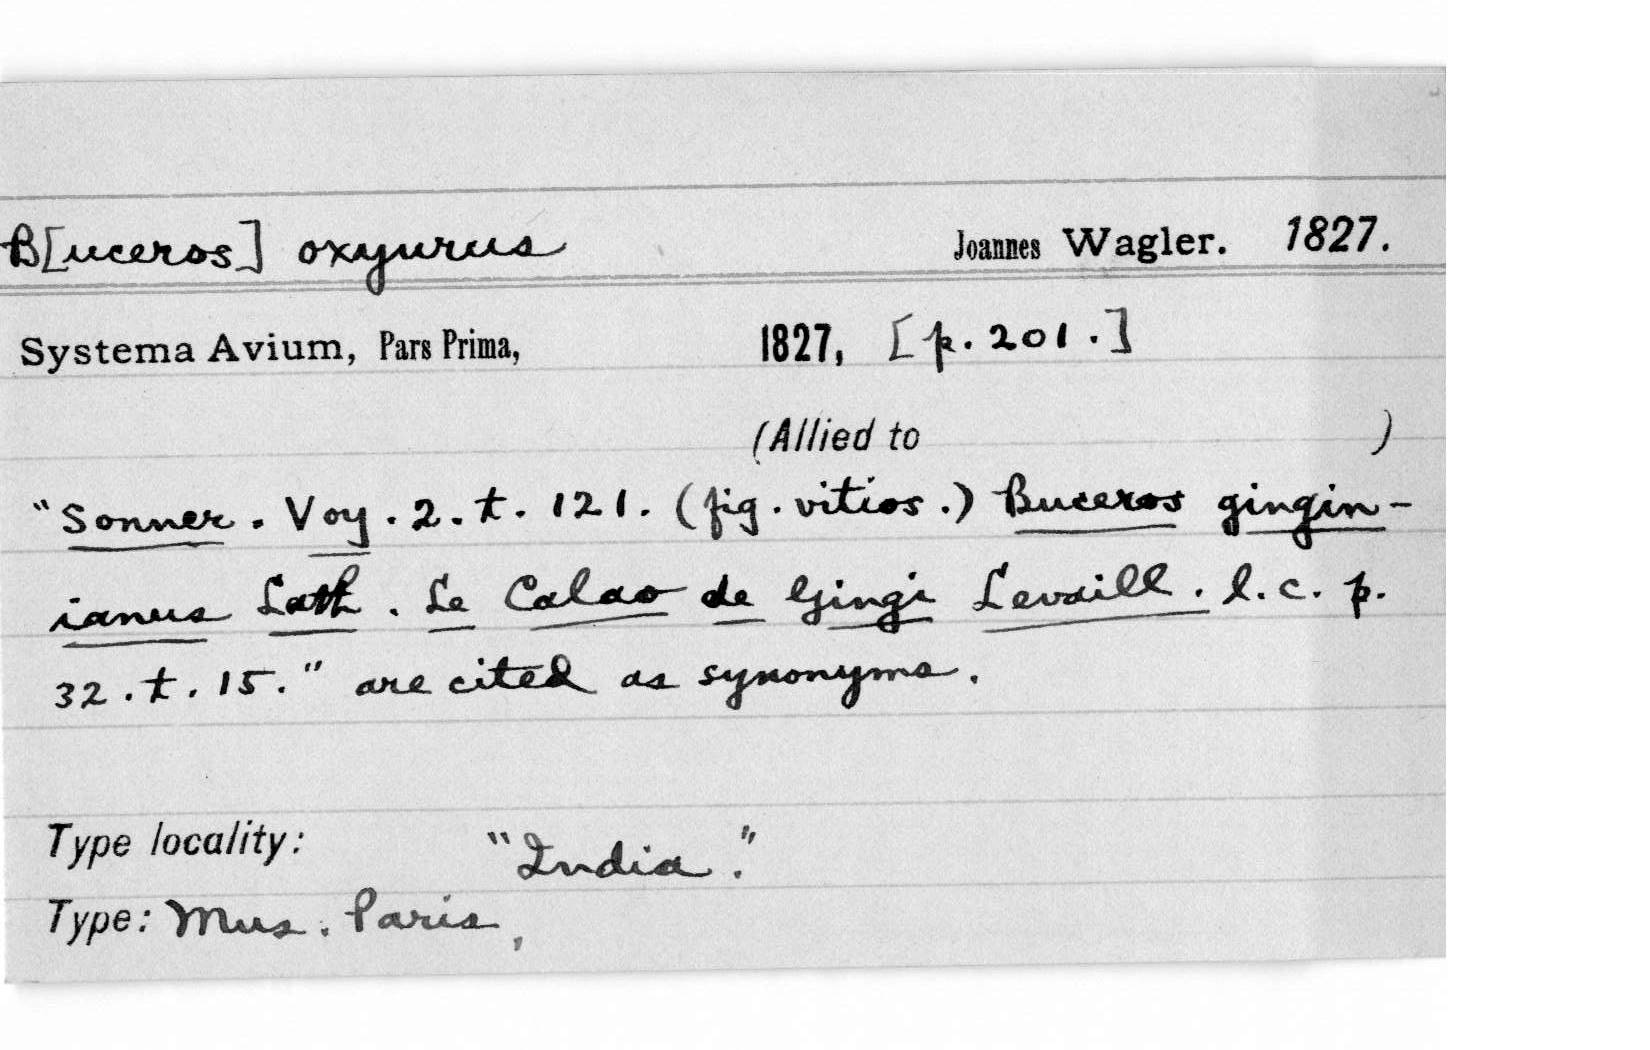 B[uceros] oxyurus Joannes Wagler. 1827.
Systema Avium, Pars Prima, 1827, [p. 201.]
(Allied to )
"Sonner. Voy. 2. t. 121. (fig. vitios.) Buceros gingin-
ianus Lath. Le Calao de Gingi Levaill. l. c. p.
32. t. 15." are cited as synonyms.
Type locality: "India."
Type: Mus. Paris,